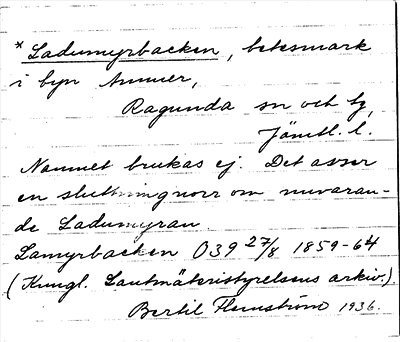 * Ladumyrbacken, betesmark
i byn Ammer,
Ragunda sn och tg,
Jämtl. l.
Namnet brukas ej. Det avser
en sluttning norr om nuvaran-
de Ladumyran
Lamyrbacken O39 27/8 1859-64
(Kungl. Lantmäteristyrelsens arkiv.).
Bertil Flemström 1936.